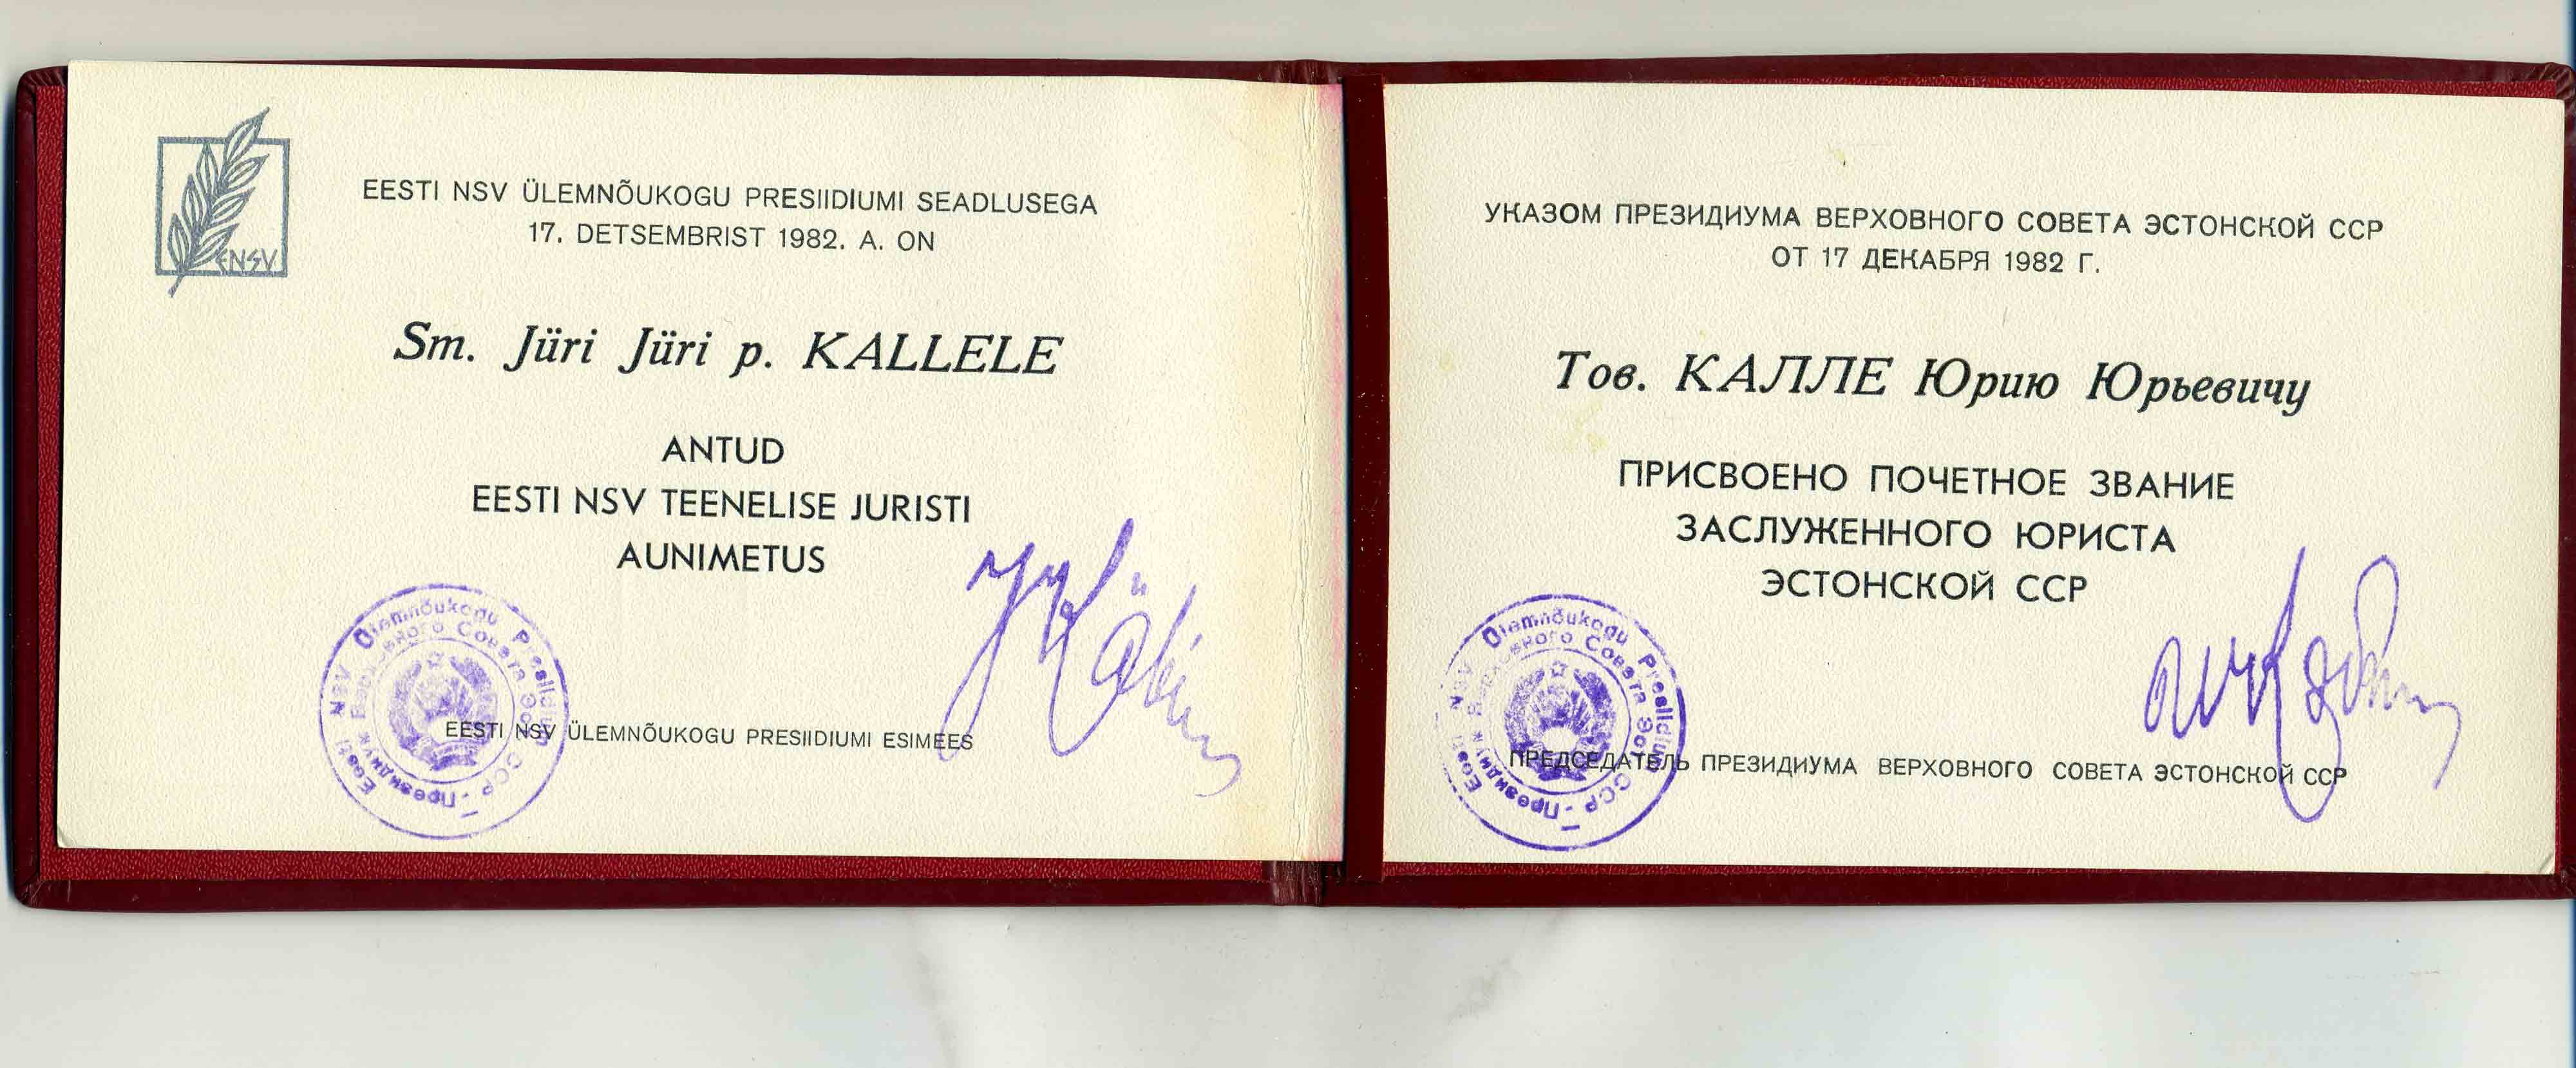 ENSV
EESTI NSV ÜLEMNÕUKOGU PRESIIDIUMI SEADLUSEGA
17. DETSEMBRIST 1982. A. ON
Sm. Jüri Jüri p. KALLELE
ANTUD
EESTI NSV TEENELISE JURISTI
AUNIMETUS
Eesti NSV Ülemnõukogu Presiidium
Верховного Совета Эст. ССР - Президиум
EESTI NSV ÜLEMNÕUKOGU PRESIIDIUMI ESIMEES
УКАЗОМ ПРЕЗИДИУМА ВЕРХОВНОГО СОВЕТА ЭСТОНСКОЙ ССР
ОТ 17 ДЕКАБРЯ 1982 Г.
Тов. КАЛЛЕ Юрию Юрьевичу
ПРИСВОЕНО ПОЧЕТНОЕ ЗВАНИЕ
ЗАСЛУЖЕННОГО ЮРИСТА
ЭСТОНСКОЙ ССР
Eesti NSV Ülemnõukogu Presiidium
Верховного Совета Эст. ССР - Президиум
ПРЕДСЕДАТЕЛЬ ПРЕЗИДИУМА ВЕРХОВНОГО СОВЕТА ЭСТОНСКОЙ ССР